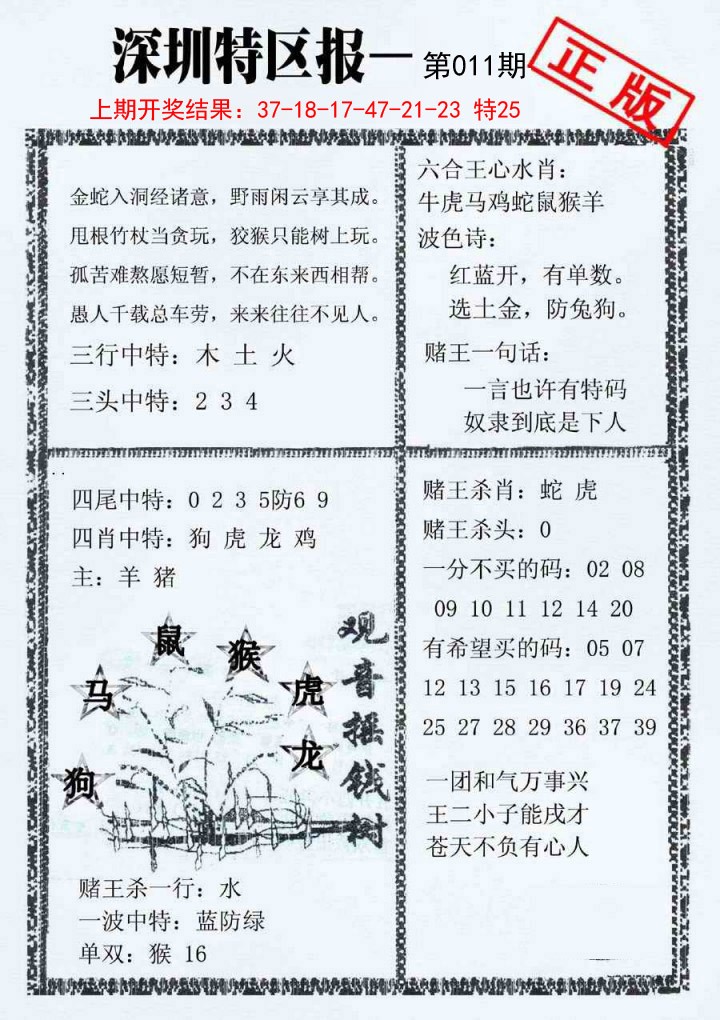 深圳特区报一 第011期
正版
上期开奖结果：37-18-17-47-21-23 特25
金蛇入洞经诸意，野雨闲云享其成。
甩根竹杖当贪玩，狡猴只能树上玩。
孤苦难熬愿短暂，不在东来西相帮。
愚人千载总车劳，来来往往不见人。
三行中特：木 土 火
三头中特：2 3 4
六合王心水肖：
牛虎马鸡蛇鼠猴羊
波色诗：
红蓝开，有单数。
选土金，防兔狗。
赌王一句话：
一言也许有特码
奴隶到底是下人
四尾中特：0 2 3 5防6 9
四肖中特：狗 虎 龙 鸡
主：羊 猪
鼠
猴
马
虎
龙
狗
观音摇钱树
赌王杀一行：水
一波中特：蓝防绿
单双：猴 16
赌王杀肖：蛇 虎
赌王杀头：0
一分不买的码：02 08
09 10 11 12 14 20
有希望买的码：05 07
12 13 15 16 17 19 24
25 27 28 29 36 37 39
一团和气万事兴
王二小子能戌才
苍天不负有心人